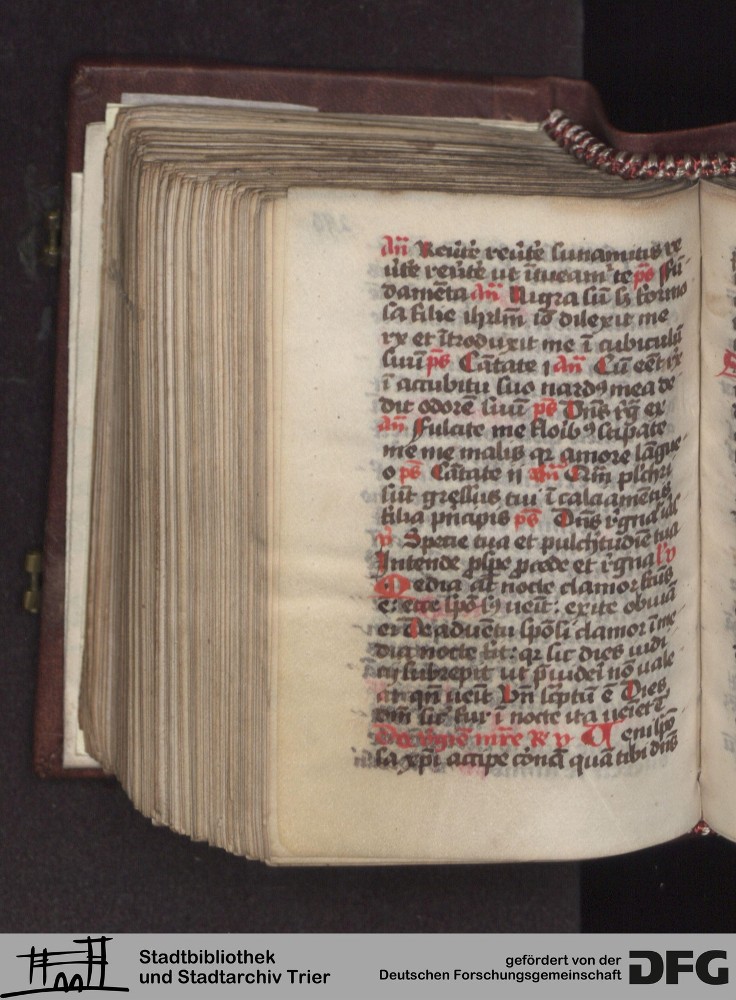 Añ Reũte reũte sunamitis re
ũte reũte ut ĩtueamʳ te ps̃ Fũ
damẽta Añ Nigra sũ sꝫ formo
sa filie ihrl̃m iõ dilexit me
rx et ĩtroduxit me ĩ cubiculũ
suũ ps̃ Cãtate j Añ Cũ eẽt rx
ĩ accubitu suo nardꝰ mea de
dit odorẽ suũ ps̃ Dñs rꝫ ex
Añ Fulcite me floibꝰ stipate
me malis qr amore lãgue
o ps̃ Cãtate ij añ Qm̃ plchri
sũt gressus tui ĩ calciamẽtis
filia pñcipis ps̃ Dñs rͥgnaͥ
ꝟ Specie tua et pulchtudiẽ tua
Intende ꝓspe ꝓcede et rͥgna
Media aũt nocte clamor
e: ecce spõ ueĩt: exite obuiã
ei De aduẽtu spõsi clamor ĩ me
dia nocte fit: qr sic dies iudi
cij subrepit ut p̃uideri nõ uale
at qñ ueĩt Vñ sc̃ptũ ẽ Dies
em̃ sic fur ĩ nocte ita ueiet
De ꝟgiẽ mr̃e Ueni spõ
sa xp̃i accipe coronã quã tibi dñs
Stadtbibliothek
und Stadtarchiv Trier
gefördert von der
Deutschen Forschungsgemeinschaft
DFG